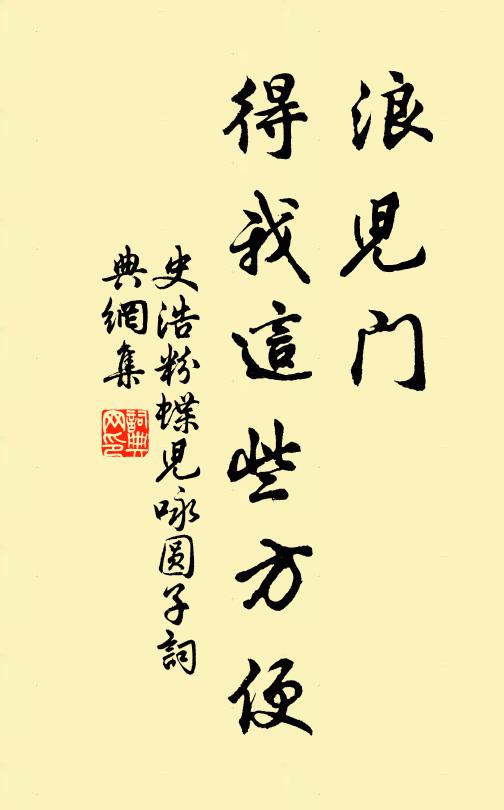 浪児门
得我這些方便
史浩粉蝶児咏圆子詞
典網集
詞典网印